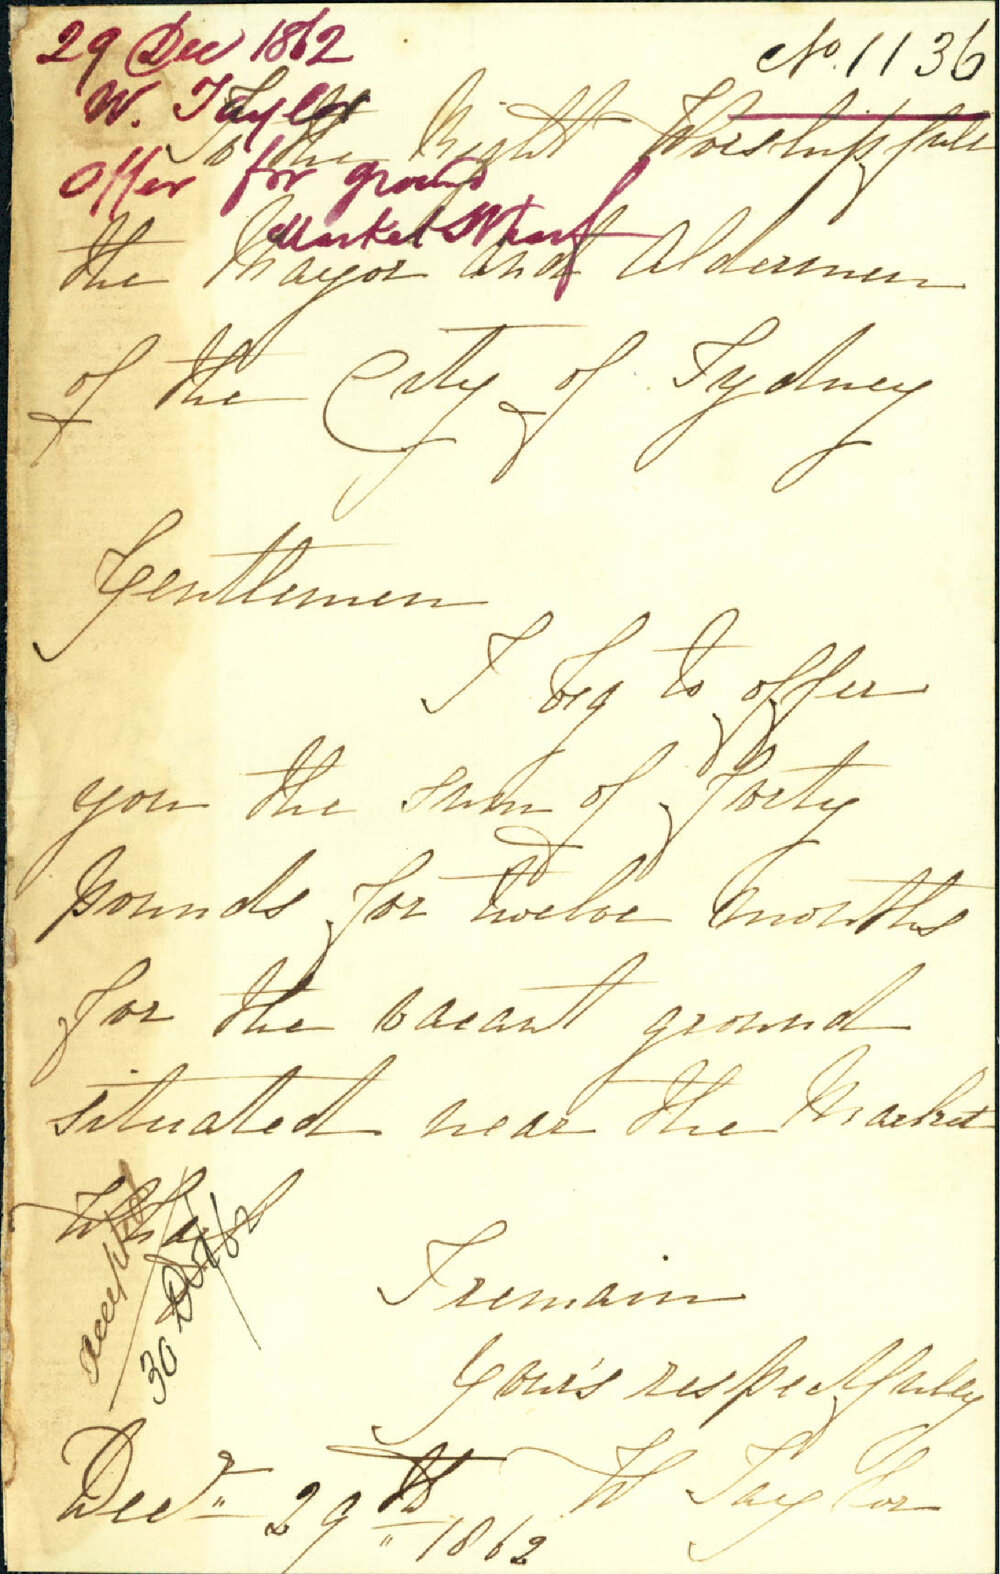 29 Dec 1862
No. 1136
W. Taylor
Offer for ground
Market Wharf
To the Right Worshipfull
the Mayor and Aldermen
of the City of Sydney
Gentlemen
I beg to offer
you the sum of forty
pounds for twelve months
for the vacant ground
situated near the Market
Wharf
accepted
30 Dec/62
I remain
Your's respectfuley
W Taylor
Decr 29th 1862